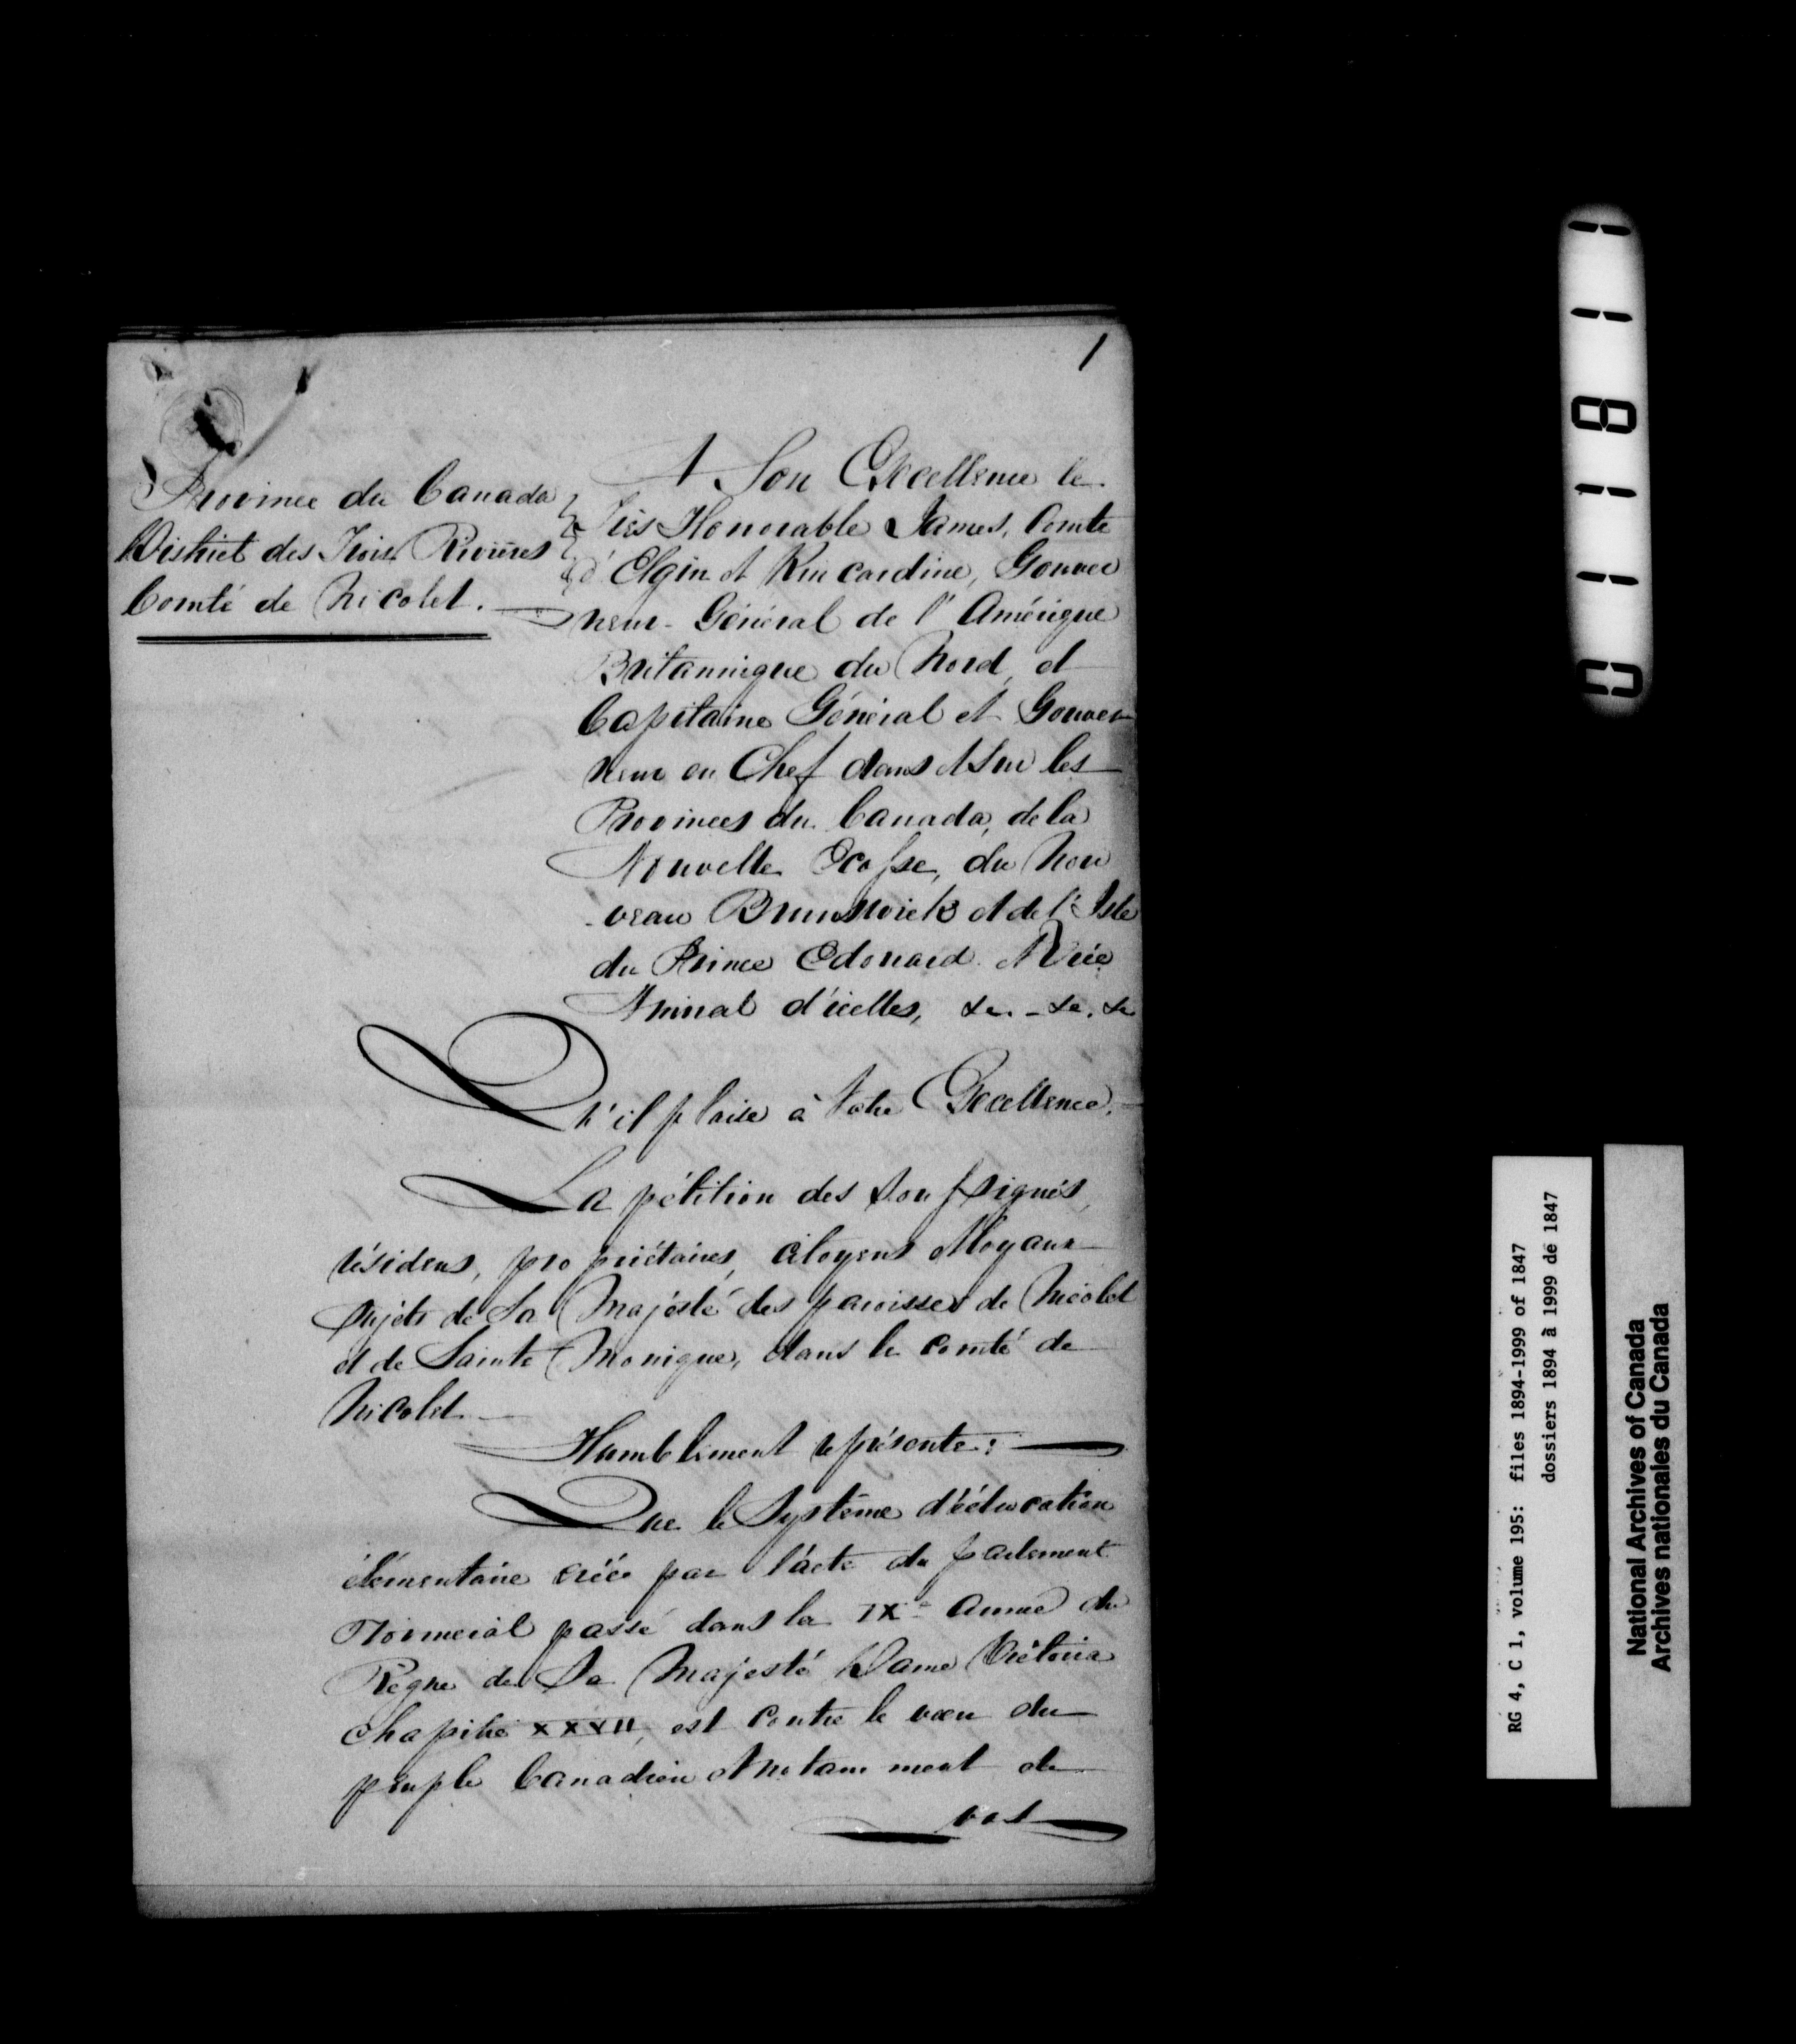 1
Province du Canada
District des Trois Rivières
Comté de Nicolet.
A Son Excellence le
Très Honorable James, Comte
d'Elgin et Kincardine, Gouver
neur-Général de l'Amérique
Britannique du Nord, et
Capitaine Général et Gouver
neur en Chef dans et sur les
Provinces du Canada, de la
Nouvelle Ecosse, du Nou
-veau Brunswick et de l'Isle
du Prince Edouard et Vice
Amiral d'icelles, &c. - &c. &c
Qu'il plaise à Votre Excellence.
La pétition des Soussignés,
résidens, propriétaires, citoyens et loyaux
Sujets de Sa Majesté des paroisses de Nicolet
et de Sainte Monique, dans le comté de
Nicolet.
Humblement représente:
Que le Système d'éducation
élémentaire créée par l'acte du parlement
Provincial passé dans la IXe Année du
Règne de Sa Majesté Dame Victoria
Chapitre XXVII, est contre le vœu du
peuple Canadien et notamment de
vos
011811
RG 4, C 1, volume 195: files 1894-1999 of 1847
dossiers 1894 à 1999 de 1847
National Archives of Canada
Archives nationales du Canada